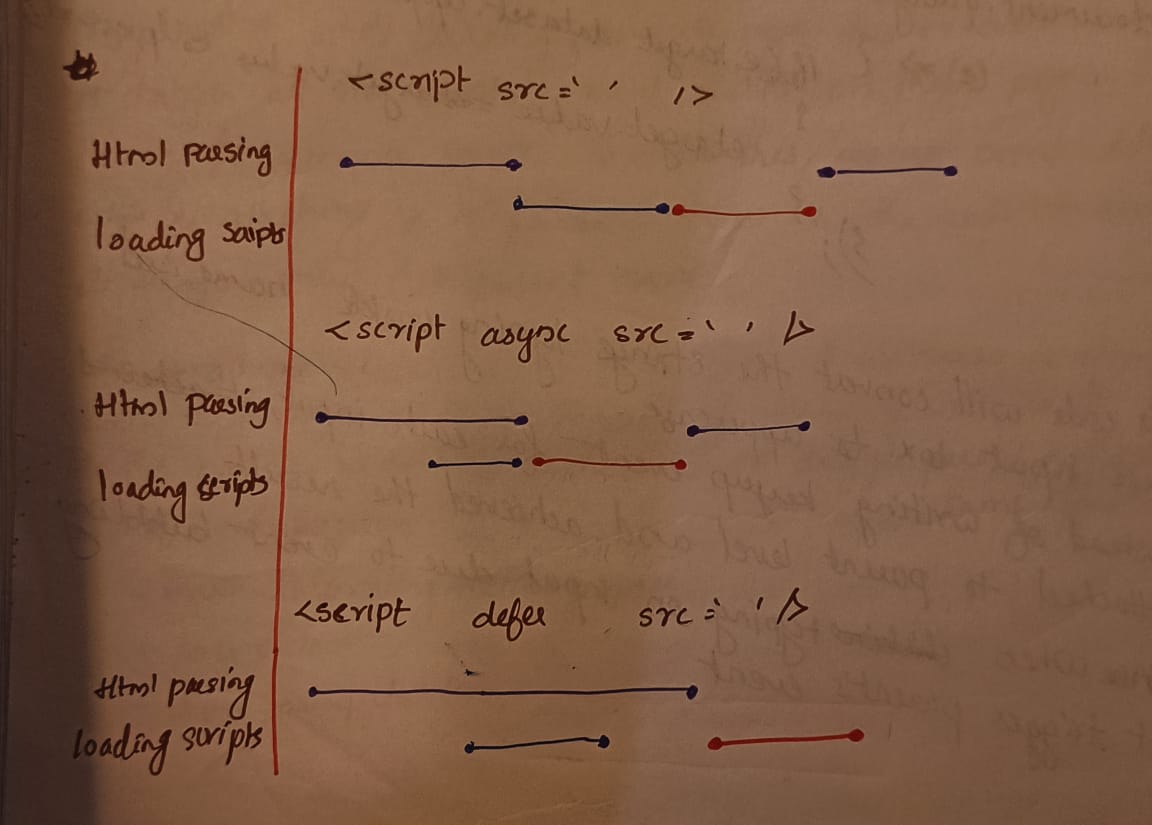 <script src=' ' />
Html Parsing
loading scripts
<script async src=' ' />
Html Parsing
loading scripts
<script defer src=' ' />
Html parsing
loading scripts